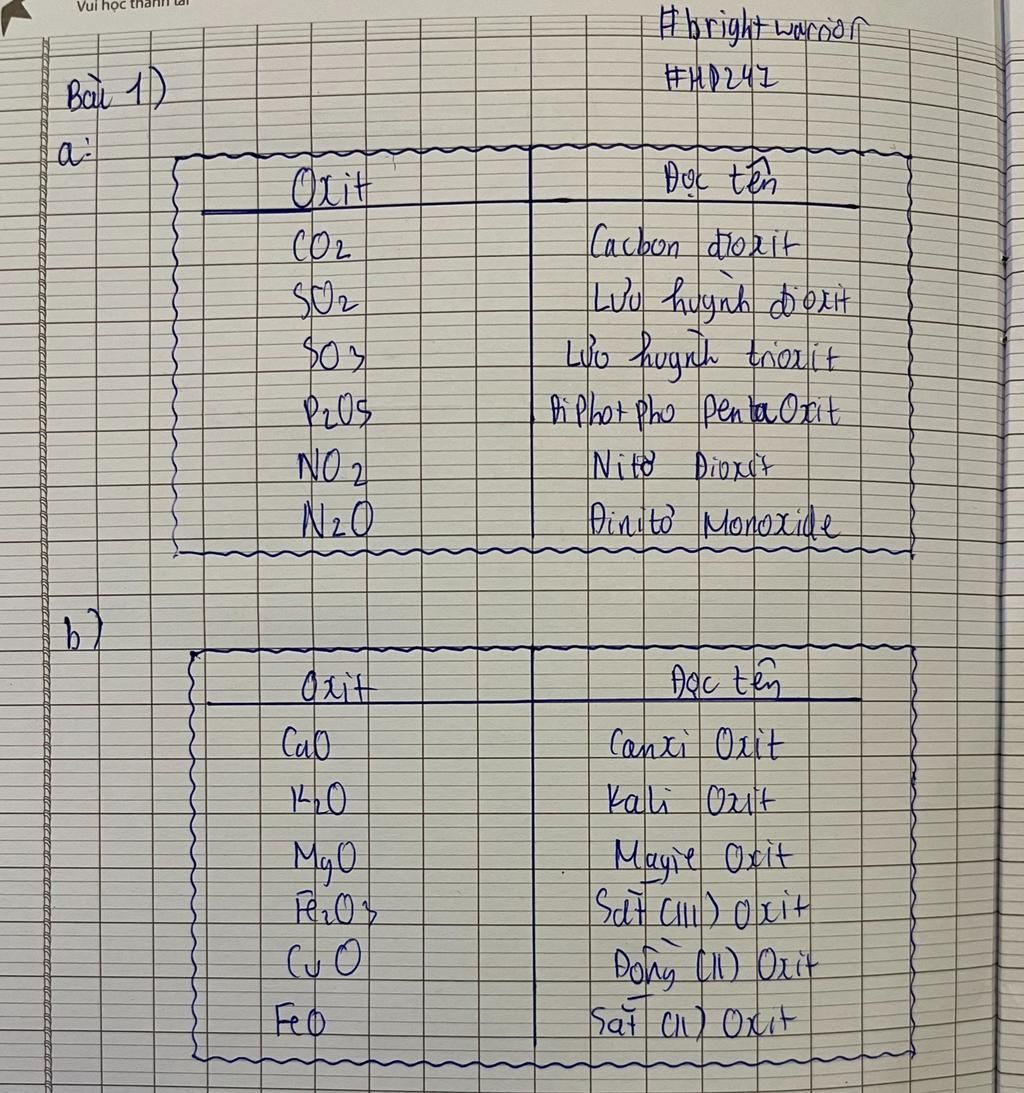 Vui học thành tài
#bright warrior
#HD241
Bài 1)
a:
Oxit Đọc tên
CO2 Cacbon đioxit
SO2 Lưu huỳnh đioxit
SO3 Lưu huỳnh trioxit
P2O5 Điphotpho pentaOxit
NO2 Nitơ Đioxit
N2O Đinitơ Monoxide
b)
Oxit Đọc tên
CaO Canxi Oxit
K2O Kali Oxit
MgO Magie Oxit
Fe2O3 Sắt (III) Oxit
CuO Đồng (II) Oxit
FeO Sắt (II) Oxit